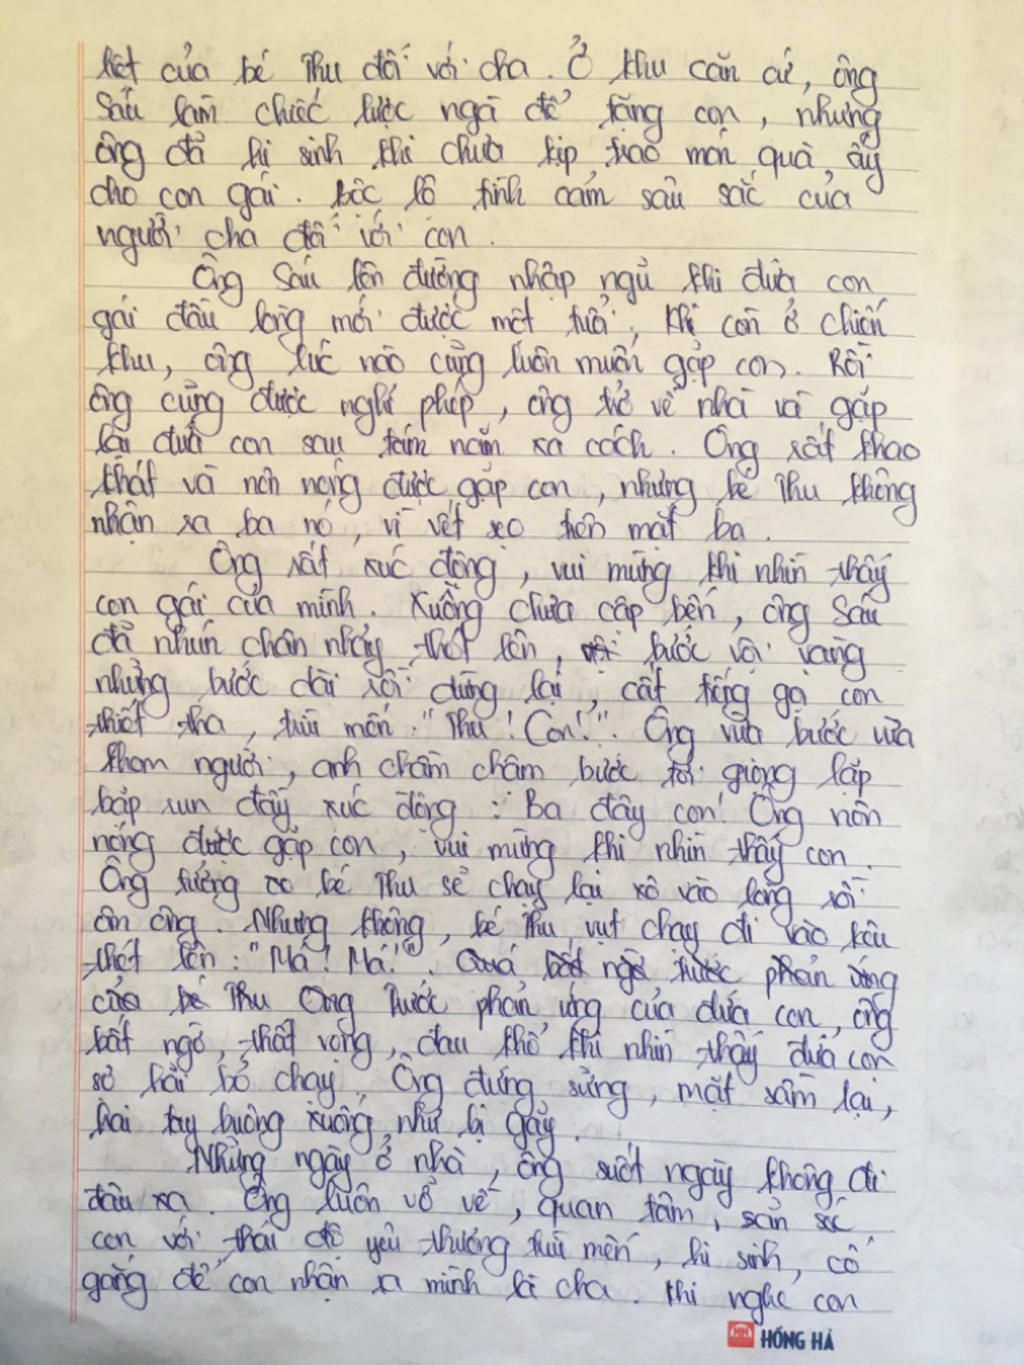 liệt của bé Thu đối với cha. Ở khu căn cứ, ông
Sáu làm chiếc lược ngà để tặng con, nhưng
ông đã hi sinh khi chưa kịp trao món quà ấy
cho con gái. Bộc lộ tình cảm sâu sắc của
người cha đối với con.
Ông Sáu lên đường nhập ngũ khi đứa con
gái đầu lòng mới được một tuổi, khi còn ở chiến
khu, ông lúc nào cũng luôn muốn gặp con. Rồi
ông cũng được nghỉ phép, ông trở về nhà và gặp
lại đứa con sau tám năm xa cách. Ông rất khao
khát và nôn nóng được gặp con, nhưng bé Thu không
nhận ra ba nó, vì vết sẹo trên mặt ba.
Ông rất xúc động, vui mừng khi nhìn thấy
con gái của mình. Xuồng chưa cập bến, ông Sáu
đã nhún chân nhảy thót lên, bước vội vàng
những bước dài rồi dừng lại, cất tiếng gọi con
thiết tha, trìu mến: "Thu! Con!". Ông vừa bước vừa
khom người, anh chầm chậm bước tới giọng lắp
bắp run đầy xúc động: Ba đây con! Ông nôn
nóng được gặp con, vui mừng khi nhìn thấy con.
Ông tưởng bé Thu sẽ chạy lại xô vào lòng rồi
ôm ông. Nhưng không, bé Thu vụt chạy đi vào kêu
thét lên: "Má! Má!". Quá bất ngờ trước phản ứng
của bé Thu Ông trước phản ứng của đứa con, ông
bất ngờ, thất vọng, đau khổ khi nhìn thấy đứa con
sợ hãi bỏ chạy. Ông đứng sững, mặt sầm lại,
hai tay buông xuống như bị gãy.
Những ngày ở nhà, ông suốt ngày không đi
đâu xa. Ông luôn vỗ về, quan tâm, săn sóc
con với thái độ yêu thương trìu mến, hi sinh, cố
gắng để con nhận ra mình là cha. Khi nghe con
HỒNG HÀ